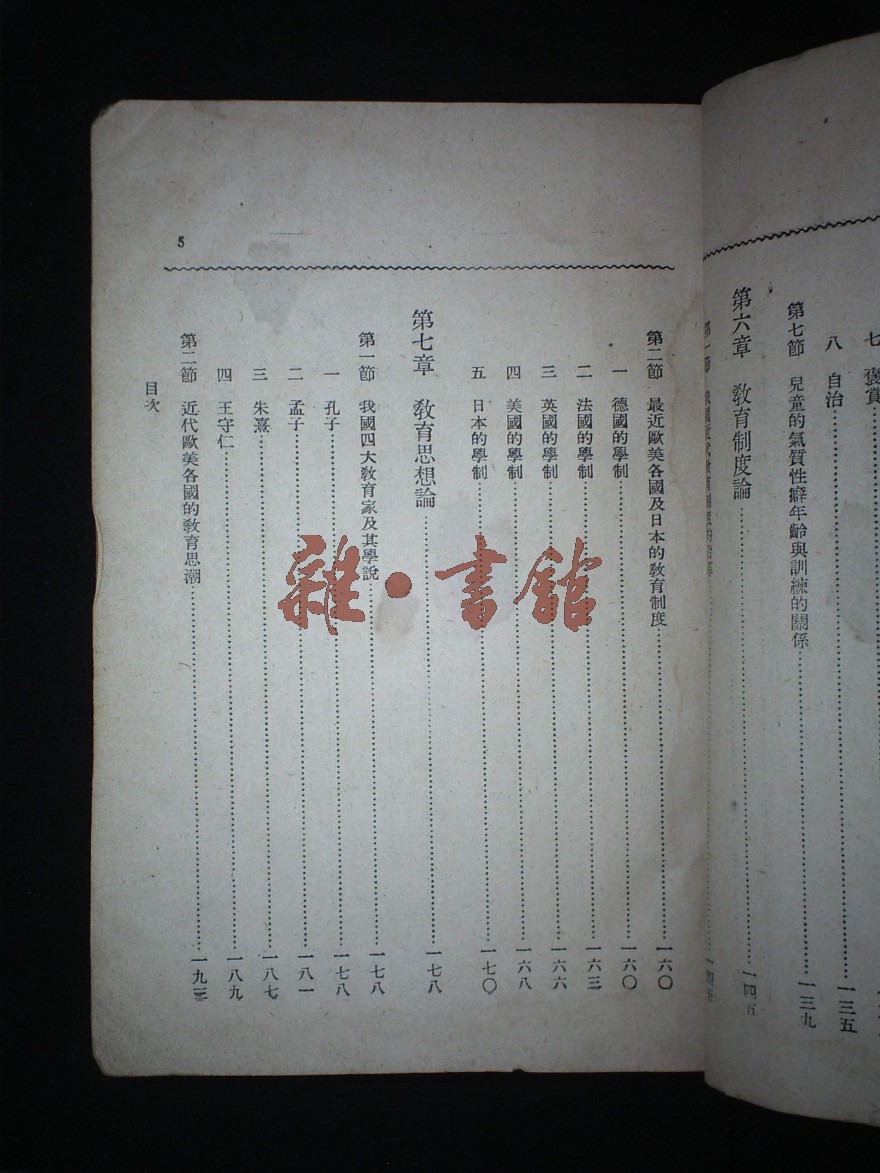 七 褒賞
八 自治 一三五
第七節 兒童的氣質性癖年齡與訓練的關係 一三九
第六章 敎育制度論 一四五
第一節 我國近代敎育制度的沿革 一四五
5
第二節 最近歐美各國及日本的敎育制度 一六〇
一 德國的學制 一六〇
二 法國的學制 一六三
三 英國的學制 一六六
四 美國的學制 一六八
五 日本的學制 一七〇
第七章 敎育思想論 一七八
第一節 我國四大敎育家及其學說 一七八
一 孔子 一七八
二 孟子 一八一
三 朱熹 一八七
四 王守仁 一八九
第二節 近代歐美各國的敎育思潮 一九三
目次
雜·書館